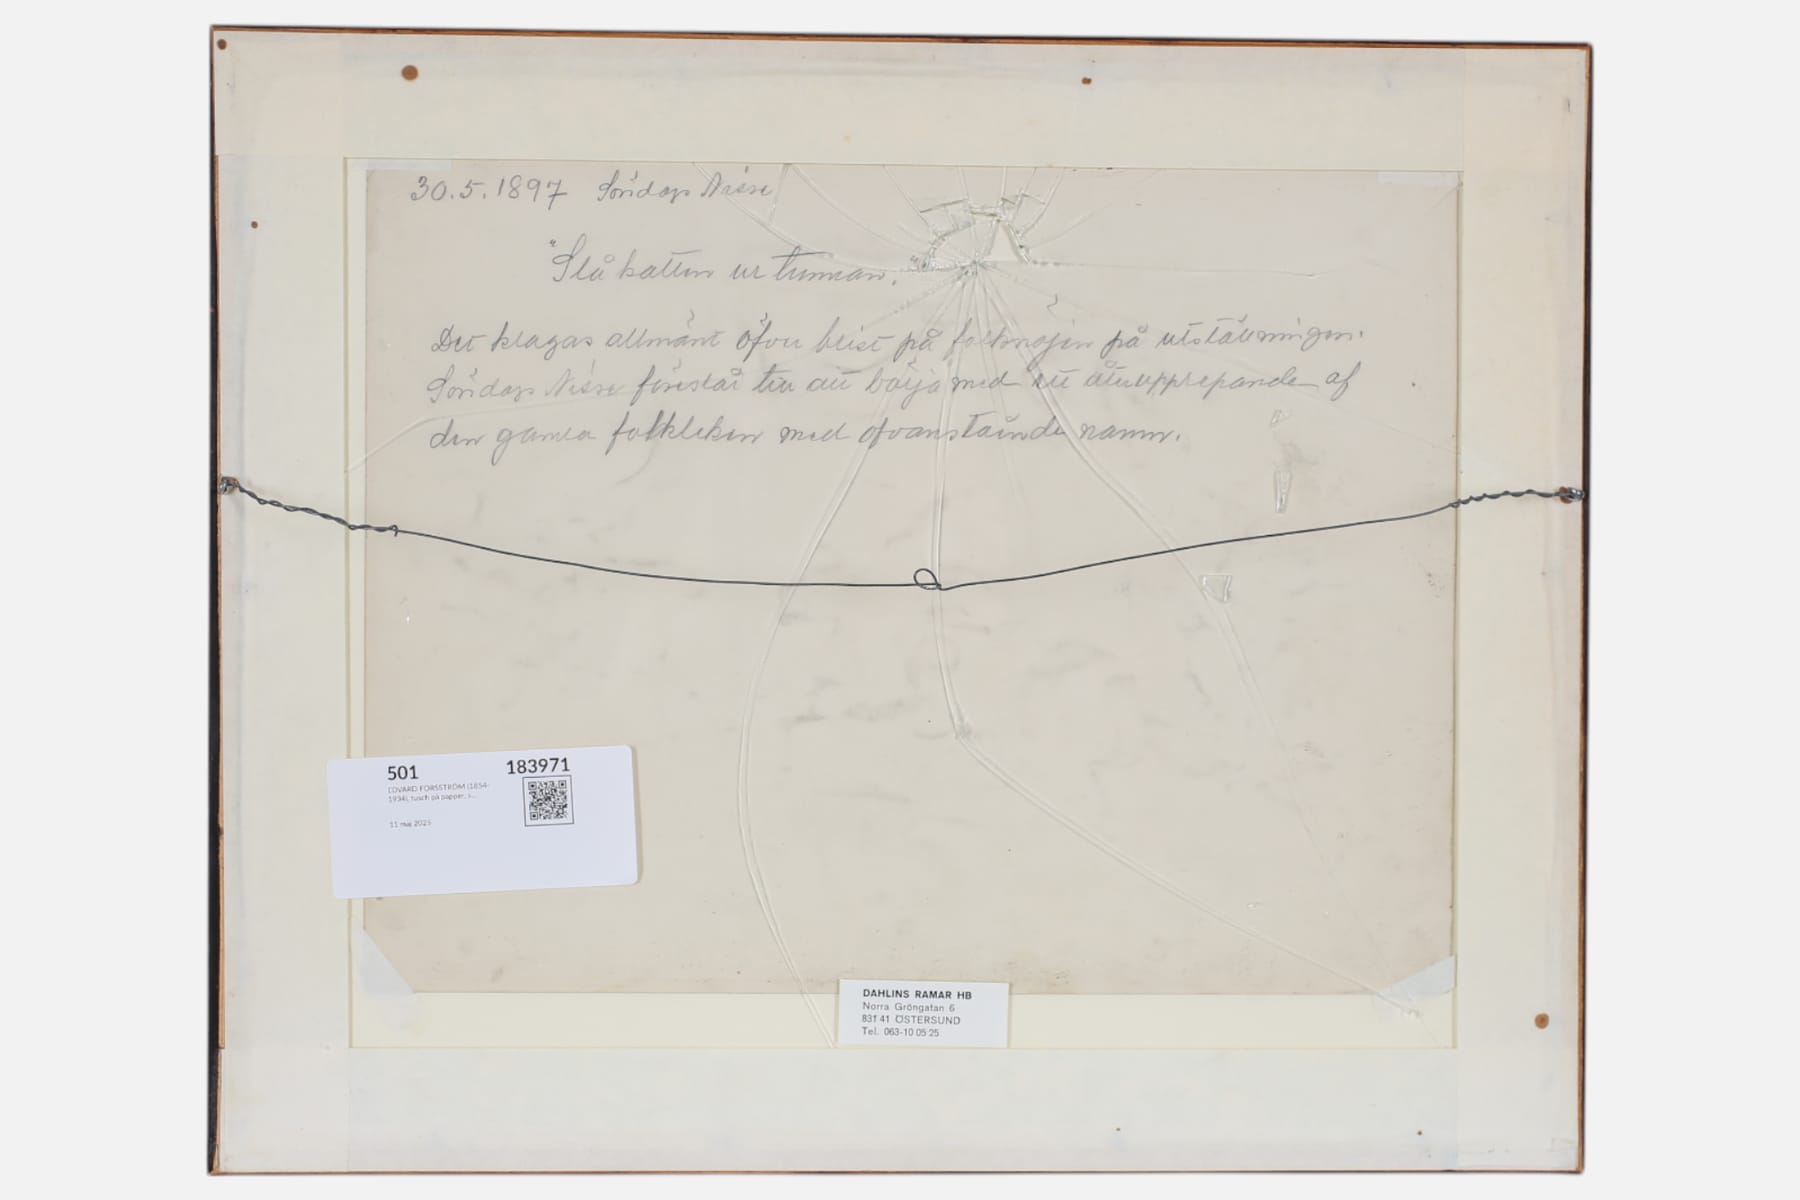 30.5.1897 Söndags Nisse
"Slå katten ur tunnan."
Det klagas allmänt öfver brist på folknöjen på utställningen.
Söndags Nisse föreslår till att börja med ett återupprepande af
den gamla folkleken med ofvanstående namn.
501 183971
EDVARD FORSSTRÖM (1854-
1934), tusch på papper, s...
11 maj 2025
DAHLINS RAMAR HB
Norra Gröngatan 6
831 41 ÖSTERSUND
Tel. 063-10 05 25